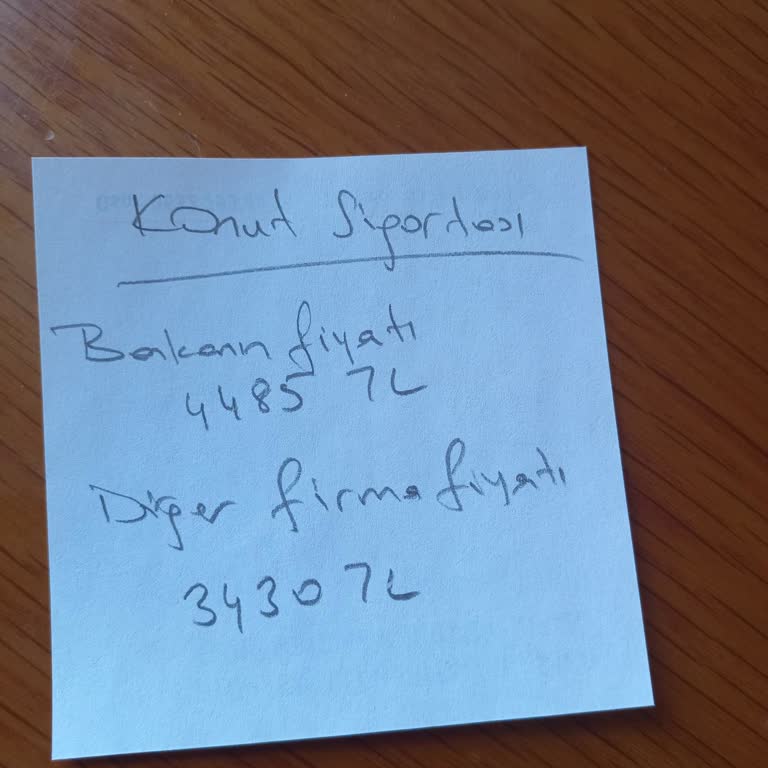 Konut Sigortası
Bankanın fiyatı
4485 TL
Diğer firma fiyatı
3430 TL